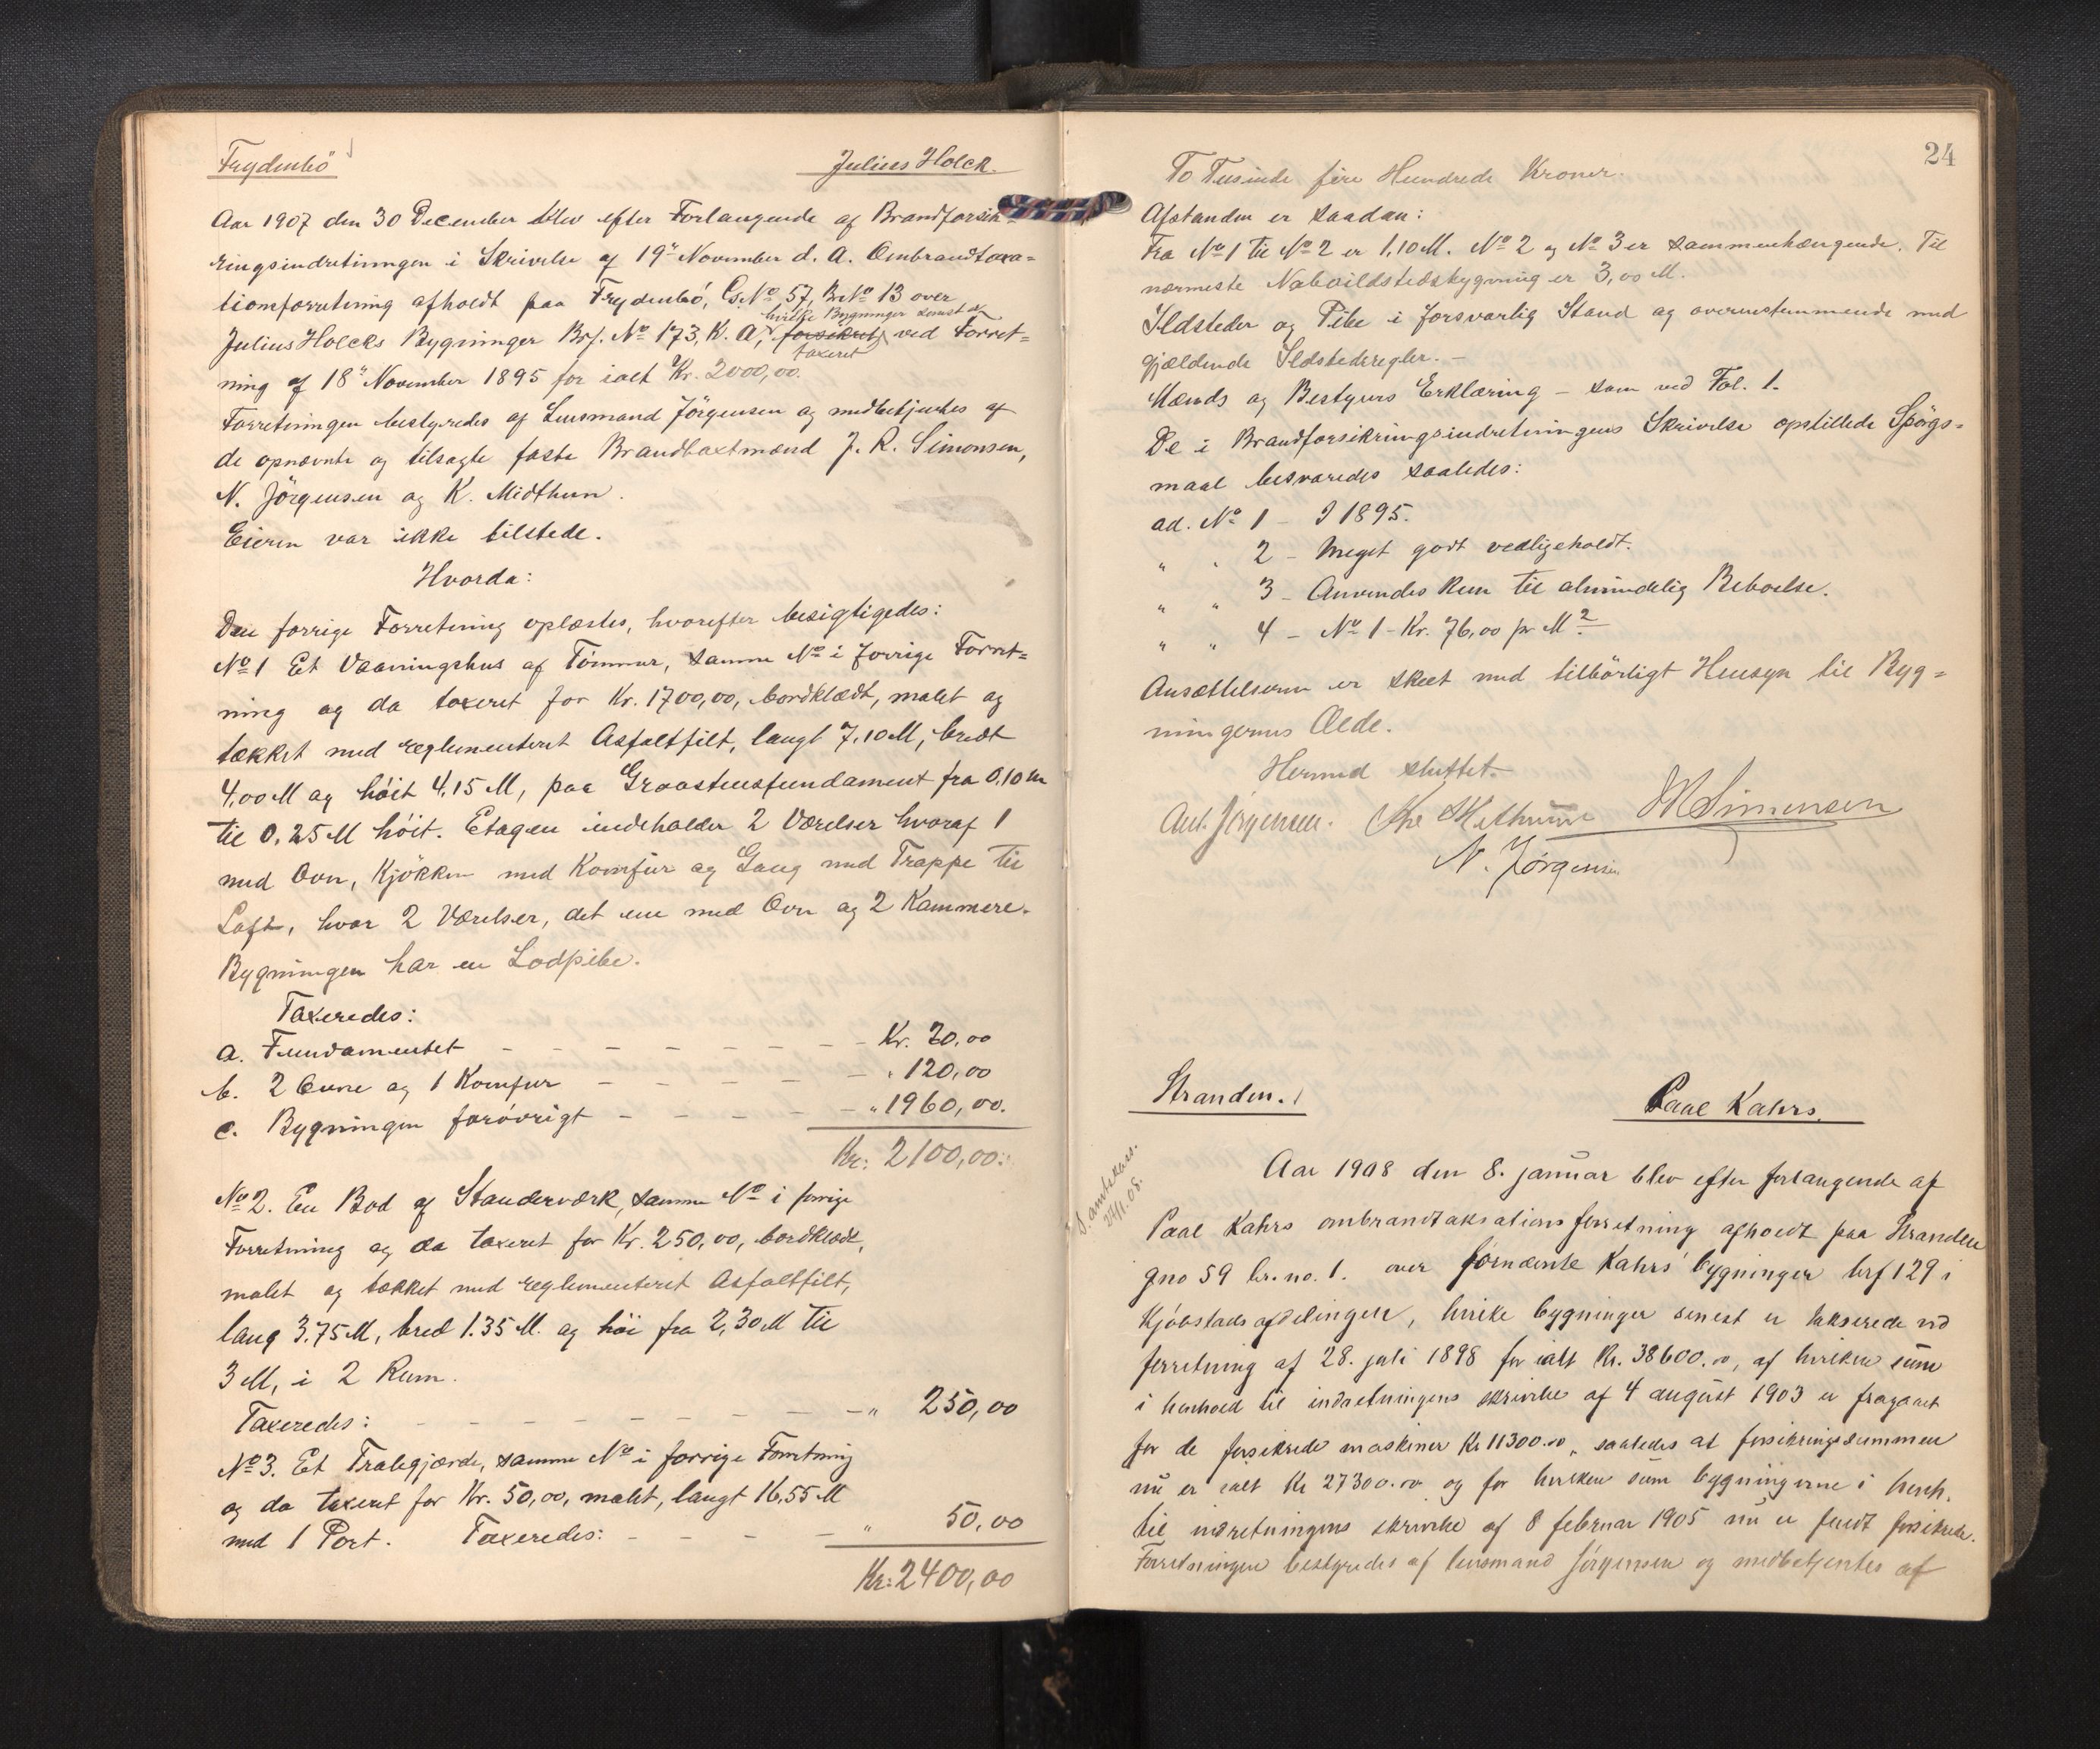 Frydenbö
Julius Holck.
Aar 1907 den 30 December blev efter Forlangende af Brandforsik-
ringsindretningen i Skrivelse af 19" November d. A. Ombrandtaxa=
tionsforretning afholdt paa Frydenbö, Gs. No 57, Br. No 13 over
hvilke Bygninger senest er
Julius Holcks Bygninger Brf. No 173, K. A, forsikret ved Forret=
taxeret
ning af 18" November 1895 for ialt Kr. 2000,00.
Forretningen bestyredes af Lensmand Jörgensen og medbetjentes af
de opnævnte og tilsagte faste Brandtaxtmænd J. R. Simonsen,
N. Jörgensen og K. Midthun.
Eieren var ikke tilstede.
Hvorda:
Den forrige Forretning oplæstes, hvorefter besigtigedes:
No 1 Et Vaaningshus af Tömmer, samme No i forrige Forret=
ning og da taxeret for Kr. 1700,00, bordklædt, malet og
tækket med reglementeret Asfaltfilt, langt 7.10 M, bredt
4,00 M og höit 4.15 M, paa Graastensfundament fra 0,10 m
til 0,25 M höit. Etagen indeholder 2 Værelser hvoraf 1
med Ovn, Kjökken med Komfur og Gang med Trappe til
Loft, hvor 2 Værelser, det ene med Ovn og 2 Kammere.
Bygningen har en Lodpibe.
Taxeredes:
a. Fundamentet - - - - - - - - Kr. 20,00
b. 2 Ovne og 1 Komfur - - - - - - " 120,00
c. Bygningen forövrigt - - - - - " 1960,00.
Kr: 2100,00.
No 2. En Bod af Standerværk, samme No i forrige
Forretning og da taxeret for Kr. 250,00, bordklædt,
malet og tækket med reglementeret Asfaltfilt,
lang 3.75 M, bred 1.35 M. og höi fra 2,30 M til
3 M, i 2 Rum.
Taxeredes: - - - - - - - - - " 250,00
No 3. Et Trælegjærde, samme No i forrige Forretning
og da taxeret for Kr. 50,00, malet, langt 16,55 M
med 1 Port. Taxeredes: - - - - " 50,00
Kr: 2400,00
24
To Tusinde fire Hundrede Kroner.
Afstanden er saadan:
Fra No 1 til No 2 er 1,10 M. No 2 og No 3 er sammenhængende. Til
nærmeste Naboildstedsbygning er 3,00 M.
Ildsteder og Pibe i forsvarlig Stand og overensstemmende med
gjældende Ildstedsregler. -
Mænds og Bestyrers Erklæring - som ved Fol. 1.
De i Brandforsikringsindretningens Skrivelse opstillede Spörgs=
maal besvaredes saaledes:
ad. No 1 - I 1895.
" " 2 - Meget godt vedligeholdt.
" " 3 - Anvendes kun til almindelig Beboelse.
" " 4 - No 1 - Kr. 76,00 pr M2
Ansættelserne er skeet med tilbörligt Hensyn til Byg=
ningernes Ælde.
Hermed sluttet.
Ant. Jörgensen. Midthun Simonsen
N. Jörgensen
Stranden.
Paal Kahrs.
27/1.08.
Aar 1908 den 8. januar blev efter forlangende af
Paal Kahrs ombrandtaksationsforretning afholdt paa Stranden
gno 59 br. no. 1. over förnævnte Kahrs' bygninger brf 129 i
Kjöbstadsafdelingen, hvilke bygninger senest er takserede ved
forretning af 28. juli 1898 for ialt Kr. 38600.00, af hvilken sum
i henhold til indretningens skrivelse af 4 august 1903 er fragaaet
for de forsikrede maskiner Kr 11300.00, saaledes at forsikringssummen
nu er ialt Kr 27300.00 og for hvilken sum bygningerne i henh.
til indretningens skrivelse af 8 februar 1905 nu er fuldt forsikrede.
Forretningen bestyredes af lensmand Jörgensen og medbetjentes af